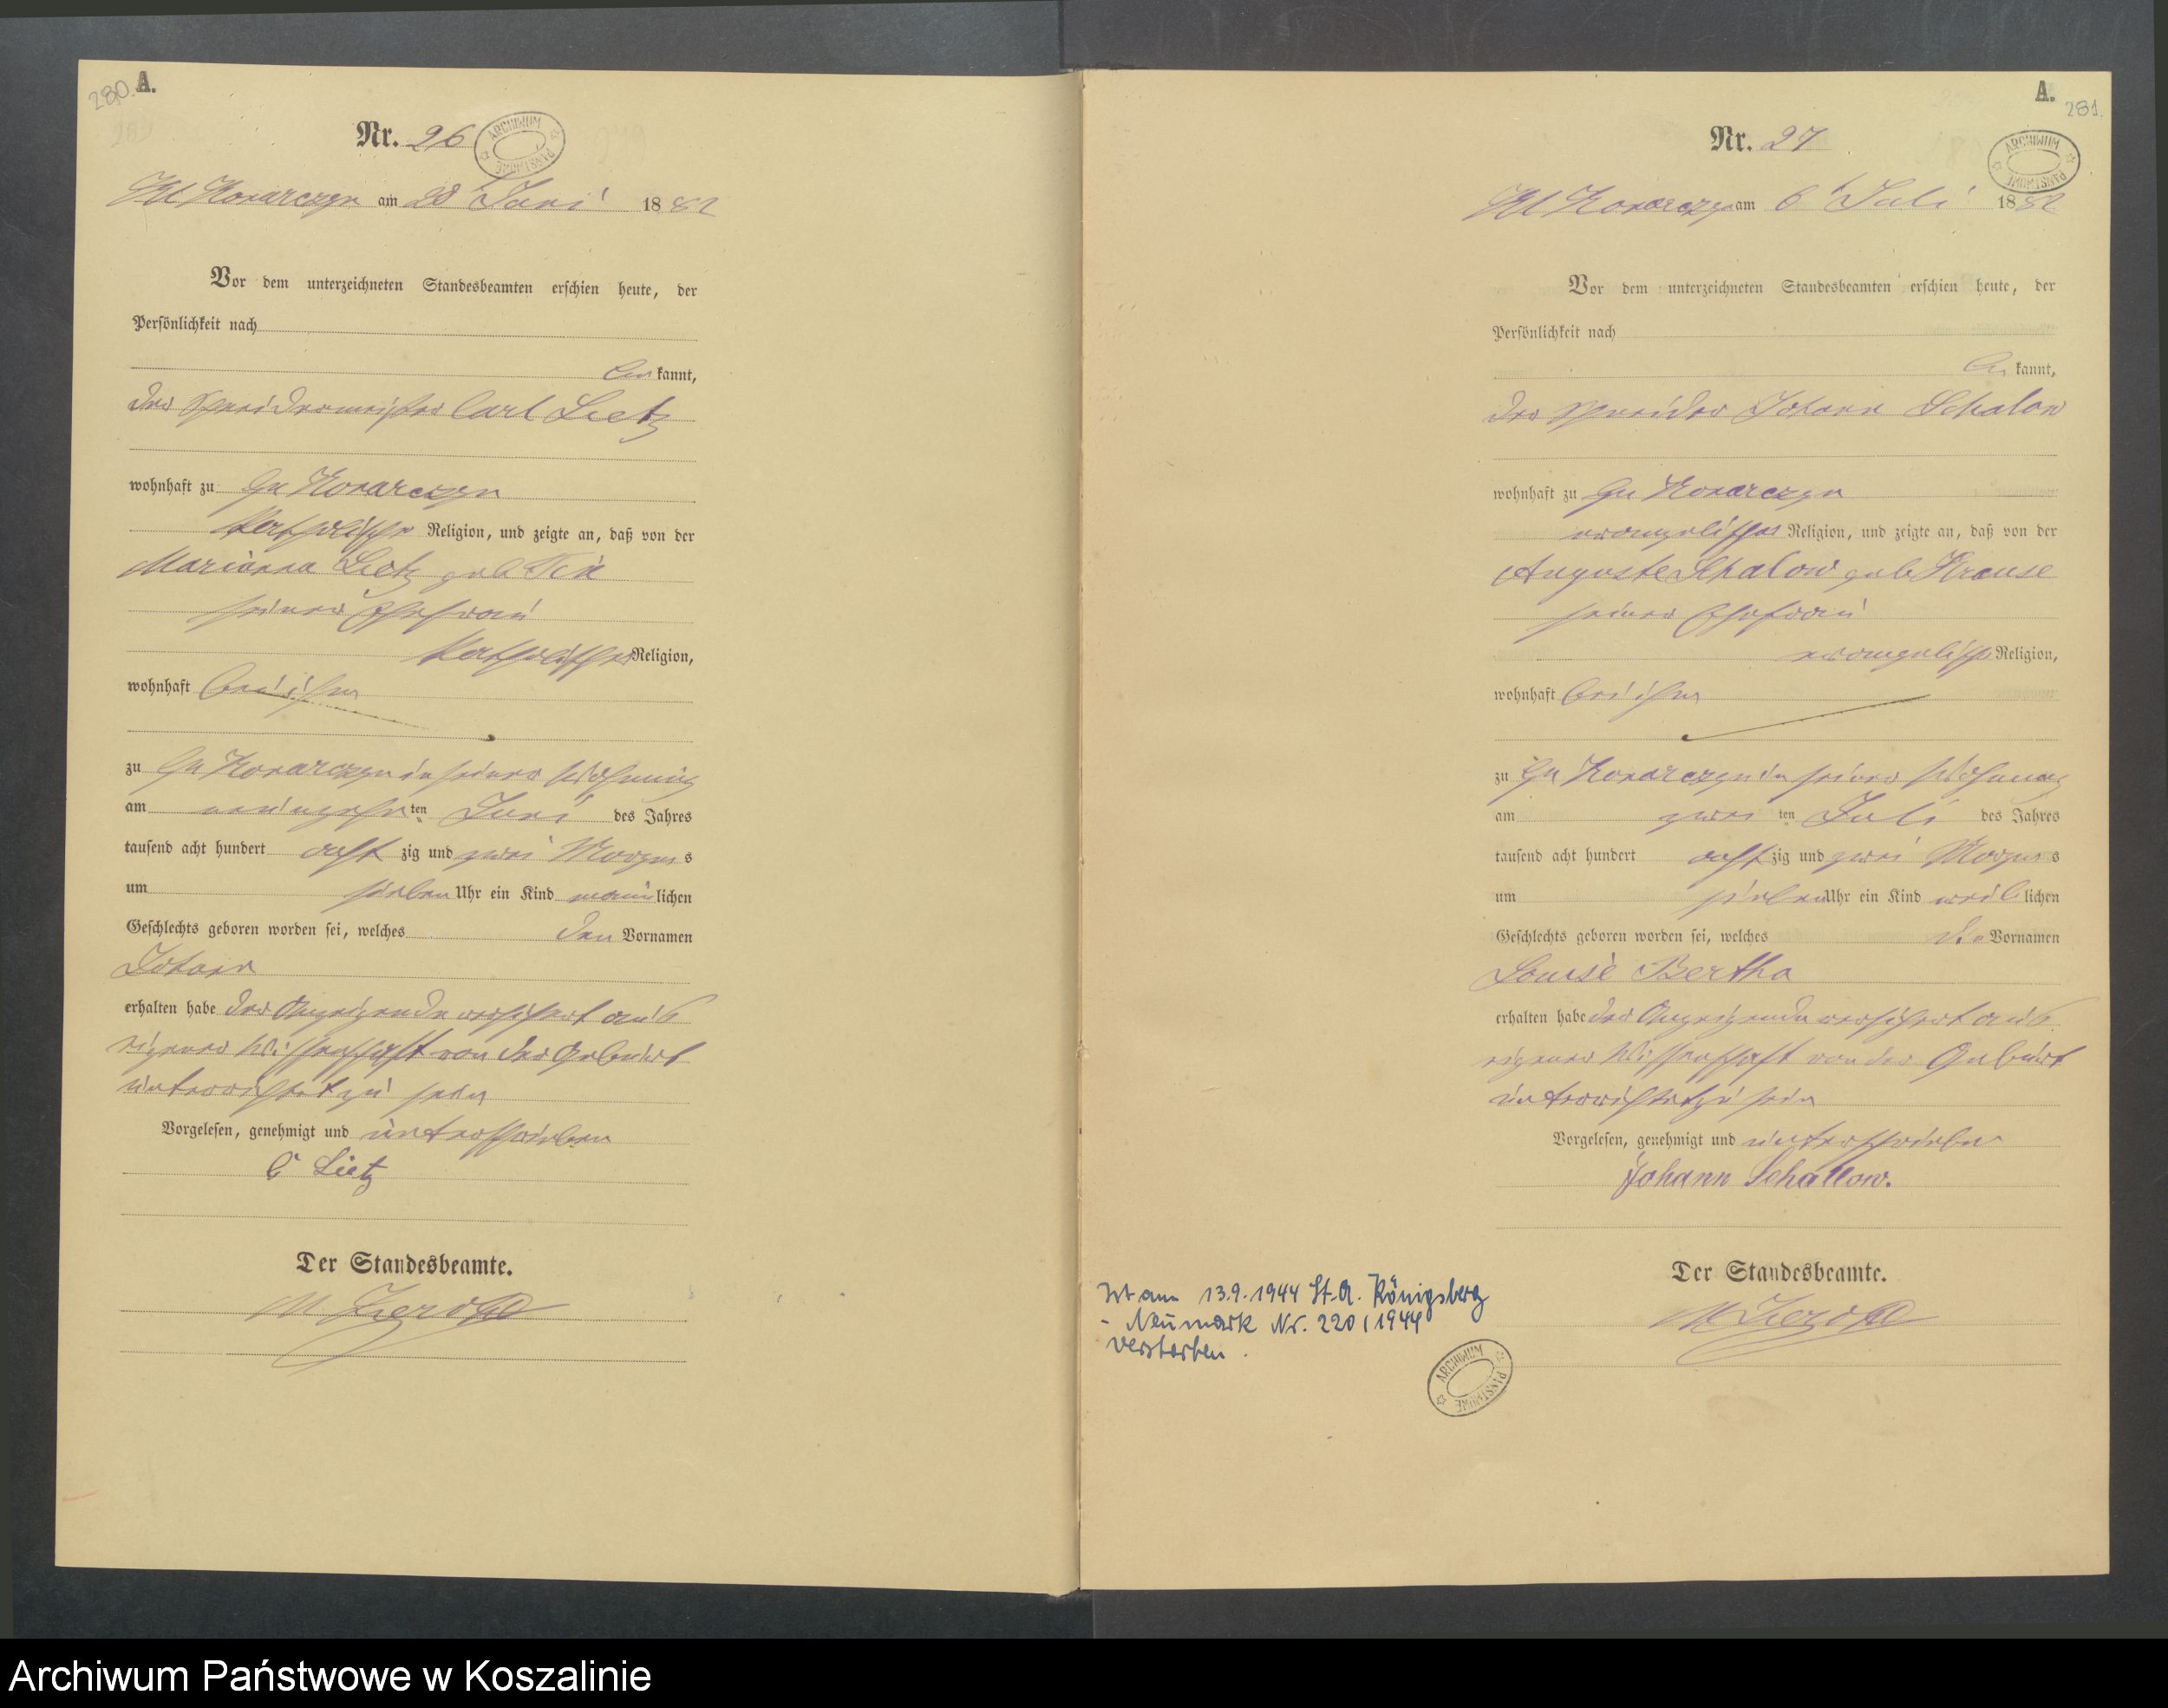 280. A.
Nr. 26
ARCHIWUM PAŃSTWOWE
Kl Konarczyn am 28 Juni 1882
Vor dem unterzeichneten Standesbeamten erschien heute, der
Persönlichkeit nach
be kannt,
der Schneidermeister Carl Lietz
wohnhaft zu Gr Konarczyn
katholischer Religion, und zeigte an, daß von der
Marianna Lietz geb
seiner Ehefrau
katholischer Religion,
wohnhaft bei ihm
zu Gr Konarczyn in seiner Wohnung
am neunzehn ten Juni des Jahres
tausend acht hundert acht zig und zwei Morgens
um sieben Uhr ein Kind männlichen
Geschlechts geboren worden sei, welches den Vornamen
Johann
erhalten habe der Anzeigende versichert aus
eigener Wissenschaft von der Geburt
unterrichtet zu sein
Vorgelesen, genehmigt und unterschrieben
C Lietz
Der Standesbeamte.
A. 281.
Nr. 27
ARCHIWUM PAŃSTWOWE
Kl Konarczyn am 6 Juli 1882
Vor dem unterzeichneten Standesbeamten erschien heute, der
Persönlichkeit nach
be kannt,
der Schneider Johann Schalow
wohnhaft zu Gr Konarczyn
evangelischer Religion, und zeigte an, daß von der
Auguste Schalow geb Krause
seiner Ehefrau
evangelisch Religion,
wohnhaft bei ihm
zu Gr Konarczyn in seiner Wohnung
am zwei ten Juli des Jahres
tausend acht hundert acht zig und zwei Morgens
um sieben Uhr ein Kind weiblichen
Geschlechts geboren worden sei, welches die Vornamen
Louise Bertha
erhalten habe der Anzeigende versichert aus
eigener Wissenschaft von der Geburt
unterrichtet zu sein
Vorgelesen, genehmigt und unterschrieben
Johann Schallow.
Der Standesbeamte.
Ist am 13.9.1944 St.A. Königsberg
- Neumark Nr. 220/1944
verstorben.
ARCHIWUM PAŃSTWOWE
Archiwum Państwowe w Koszalinie